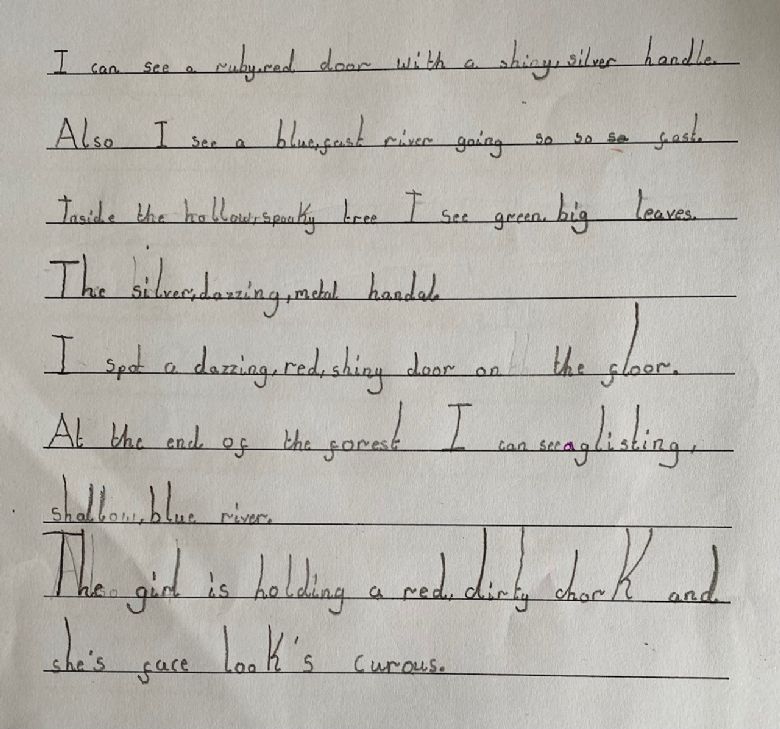 I can see a ruby,red door with a shiny,silver handle.
Also I see a blue,fast river going so so so fast.
Inside the hollow,spooky tree I see green,big leaves.
The silver,dazzing,metal handal.
I spot a dazzing,red,shiny door on the floor.
At the end of the forest I can see a glisting,
shallow,blue river.
The girl is holding a red,dirty chark and
she's face look's curous.